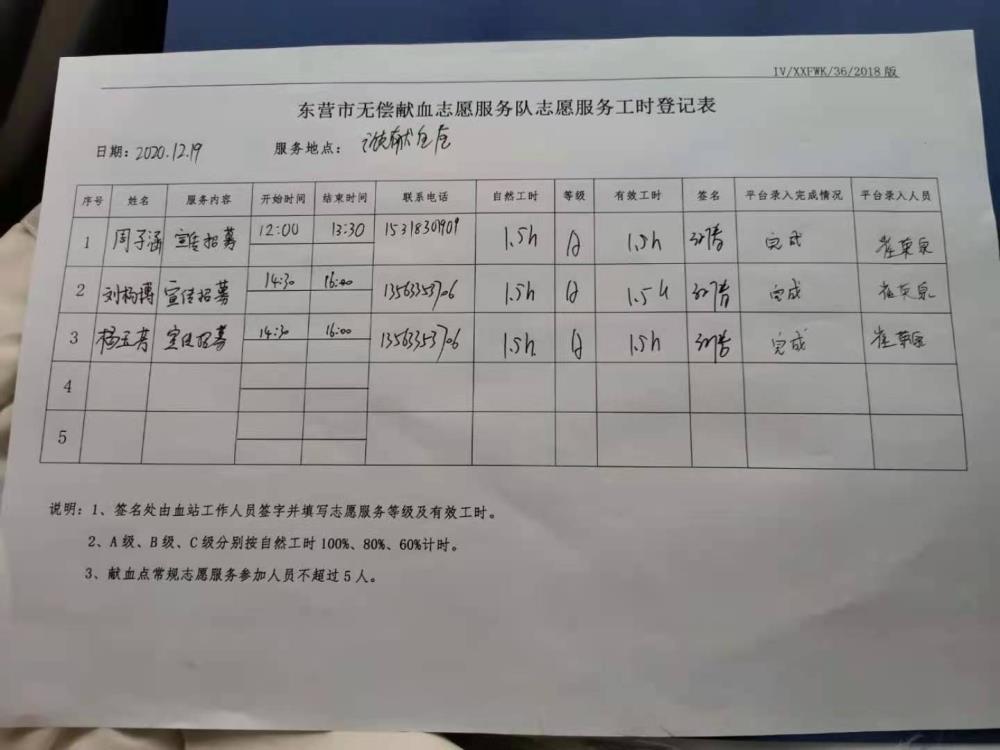 IV/XXFWK/36/2018版
东营市无偿献血志愿服务队志愿服务工时登记表
日期：2020.12.19 服务地点：
序号 姓名 服务内容 开始时间 结束时间 联系电话 自然工时 等级 有效工时 签名 平台录入完成情况 平台录入人员
1 周子涵 宣传招募 12:00 13:30 15318301909 1.5h A 1.5h 完成
2 刘杨搏 宣传招募 14:30 16:00 13563353706 1.5h A 1.5h 完成
3 杨玉芳 宣传招募 14:30 16:00 13563353706 1.5h A 1.5h 完成
4
5
说明：1、签名处由血站工作人员签字并填写志愿服务等级及有效工时。
2、A级、B级、C级分别按自然工时100%、80%、60%计时。
3、献血点常规志愿服务参加人员不超过5人。